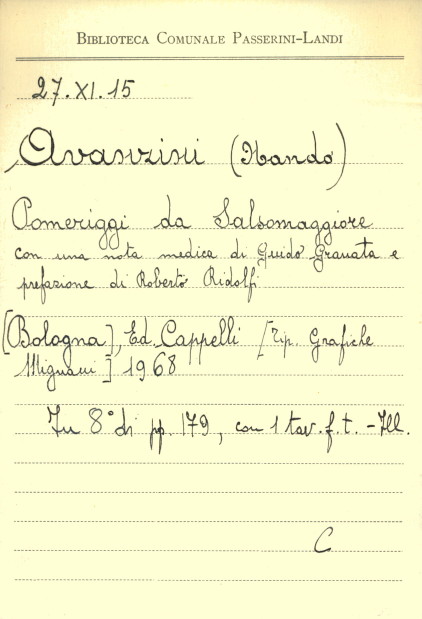 BIBLIOTECA COMUNALE PASSERINI-LANDI
27.XI.15
Avanzini (Nando)
Pomeriggi da Salsomaggiore
con una nota medica di Guido Granata e
prefazione di Roberto Ridolfi
[Bologna], Ed. Cappelli [Tip. Grafiche
Mignani] 1968
In 8° di pp. 179, con 1 tav. f. t. - Ill.
C